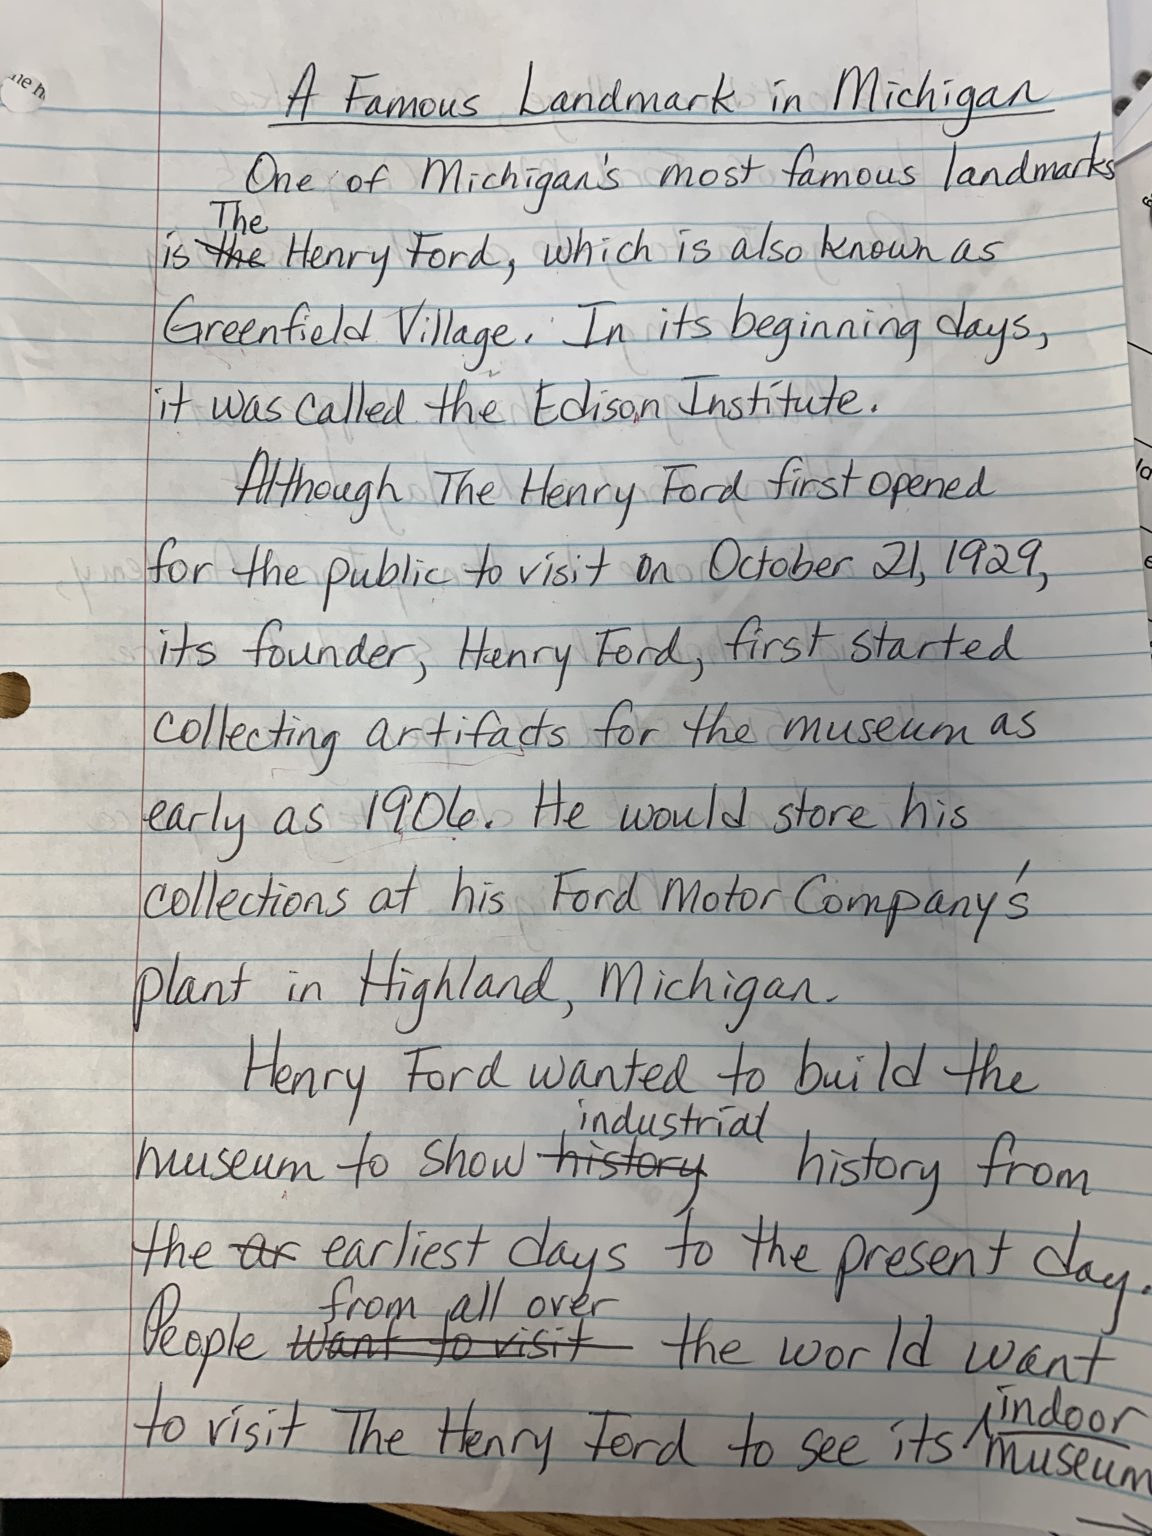 A Famous Landmark in Michigan
One of Michigan's most famous landmarks
The
is the Henry Ford, which is also known as
Greenfield Village. In its beginning days,
it was called the Edison Institute.
Although The Henry Ford first opened
for the public to visit on October 21, 1929,
its founder, Henry Ford, first started
collecting artifacts for the museum as
early as 1906. He would store his
collections at his Ford Motor Company's
plant in Highland, Michigan.
Henry Ford wanted to build the
industrial
museum to show history history from
the ar earliest days to the present day.
from all over
People want to visit the world want
indoor
to visit The Henry Ford to see its museum